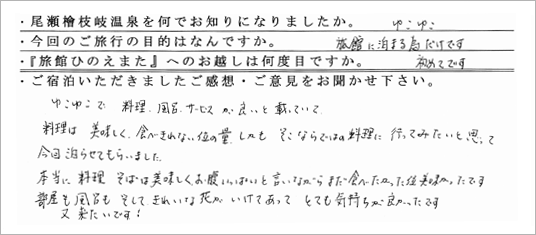 ・尾瀬檜枝岐温泉を何でお知りになりましたか。 ゆこゆこ
・今回のご旅行の目的はなんですか。 旅館に泊まる為だけです
・『旅館ひのえまた』へのお越しは何度目ですか。 初めてです
・ご宿泊いただきましたご感想・ご意見をお聞かせ下さい。
ゆこゆこで 料理、風呂、サービスが良いと載っていて
料理は 美味しく、食べきれない位の量、しかも そこならではの料理に 行ってみたいと思って
今回泊らせてもらいました
本当に料理 そばは美味しく、お腹いっぱいと言いながらまだ食べたかった位美味かったです
部屋も風呂も そして きれいな花が いけてあって とても気持ちが良かったです
又来たいです！